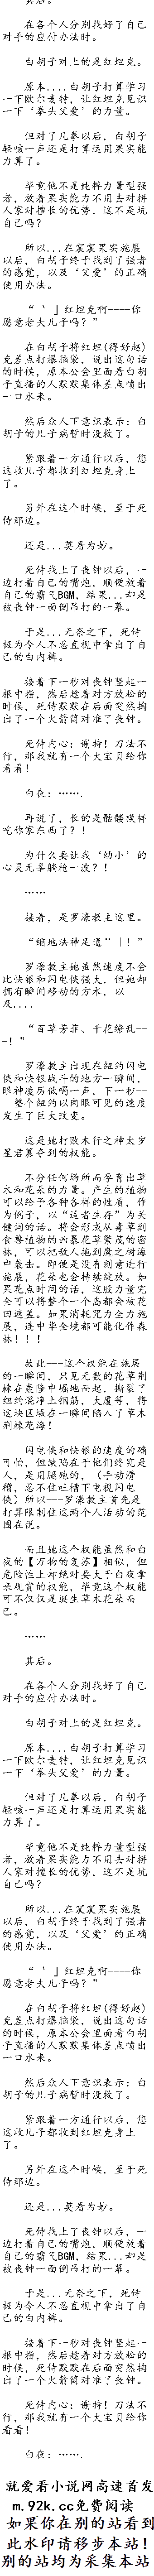 其后。
在各个人分别找好了自己
对手的应付办法时。
白胡子对上的是红坦克。
原本....白胡子打算学习
一下欧尔麦特，让红坦克见识
一下‘拳头父爱’的力量。
但对了几拳以后，白胡子
轻咳一声还是打算运用果实能
力算了。
毕竟他不是纯粹力量型强
者，放着果实能力不用去对拼
人家对擅长的优势，这不是坑
自己吗？
所以...在震震果实施展
以后，白胡子终于找到了强者
的感觉，以及‘父爱’的正确
使用办法。
“｀」红坦克啊——你
愿意老夫儿子吗？”
在白胡子将红坦(得好赵)
克差点打爆脑袋，说出这句话
的时候，原本公会里面看白胡
子直播的人默默集体差点喷出
一口水来。
然后众人下意识表示：白
胡子的儿子病暂时没救了。
紧跟着一方通行以后，您
这收儿子都收到红坦克身上
了。
另外在这个时候，至于死
侍那边。
还是...莫看为妙。
死侍找上了丧钟以后，一
边打着自己的嘴炮，顺便放着
自己的霸气BGM，结果...却是
被丧钟一面倒吊打的一幕。
于是...无奈之下，死侍
极为令人不忍直视中拿出了自
己的白内裤。
接着下一秒对丧钟竖起一
根中指，然后趁着对方放松的
时候，死侍默默在后面突然掏
出了一个火箭筒对准了丧钟。
死侍内心：谢特！刀法不
行，那我就有一个大宝贝给你
看看！
白夜：…….
再说了，长的是骷髅模样
吃你家东西了？！
为什么要让我‘幼小’的
心灵无辜躺枪一波？！
……
接着，是罗濠教主这里。
“缩地法神足通¨‖！”
罗濠教主她虽然速度不会
比快银和闪电侠强大，但她却
拥有瞬间移动的方术，以
及....
“百草芳菲、千花缭乱--
-！”
罗濠教主出现在纽约闪电
侠和快银战斗的地方一瞬间，
眼神凌厉低喝一声，下一秒--
--整个纽约以肉眼可见的速度
发生了巨大改变。
这是她打败木行之神太岁
星君篡夺到的权能。
不分任何场所而孕育出草
木和花朵的力量。产生的植物
可以给予各种各样的性质，作
为例子，以“适者生存”为关
键词的话。将会形成从毒草到
食兽植物的凶暴花草繁茂的密
林，可以把敌人拖到魔之树海
中袭击。即便是没有刻意进行
施展，花朵也会持续绽放。如
果花点时间的话，这股力量完
全可以将整个一个岛都会被花
田遮盖。如果消耗咒力全力施
展，连中华全境都可能化作森
林！！！
故此---这个权能在施展
的一瞬间，只见无数的花草荆
棘在轰隆中掘地而起，撕裂了
纽约混净土钢筋，大厦等，将
这块区域在一瞬间陷入了草木
荆棘花海！
闪电侠和快银的速度的确
可怕，但缺陷在于他们终究是
人，是用腿跑的，（手动滑
稽，忍不住吐槽下电视闪电
侠）所以---罗濠教主首先是
打算限制住这两个人活动的范
围在说。
而且她这个权能虽然和白
夜的【万物的复苏】相似，但
危险性上却绝对要大于白夜拿
来观赏的权能，毕竟这个权能
可不仅仅是诞生草木花朵而
已。
……
其后。
在各个人分别找好了自己
对手的应付办法时。
白胡子对上的是红坦克。
原本....白胡子打算学习
一下欧尔麦特，让红坦克见识
一下‘拳头父爱’的力量。
但对了几拳以后，白胡子
轻咳一声还是打算运用果实能
力算了。
毕竟他不是纯粹力量型强
者，放着果实能力不用去对拼
人家对擅长的优势，这不是坑
自己吗？
所以...在震震果实施展
以后，白胡子终于找到了强者
的感觉，以及‘父爱’的正确
使用办法。
“｀」红坦克啊——你
愿意老夫儿子吗？”
在白胡子将红坦(得好赵)
克差点打爆脑袋，说出这句话
的时候，原本公会里面看白胡
子直播的人默默集体差点喷出
一口水来。
然后众人下意识表示：白
胡子的儿子病暂时没救了。
紧跟着一方通行以后，您
这收儿子都收到红坦克身上
了。
另外在这个时候，至于死
侍那边。
还是...莫看为妙。
死侍找上了丧钟以后，一
边打着自己的嘴炮，顺便放着
自己的霸气BGM，结果...却是
被丧钟一面倒吊打的一幕。
于是...无奈之下，死侍
极为令人不忍直视中拿出了自
己的白内裤。
接着下一秒对丧钟竖起一
根中指，然后趁着对方放松的
时候，死侍默默在后面突然掏
出了一个火箭筒对准了丧钟。
死侍内心：谢特！刀法不
行，那我就有一个大宝贝给你
看看！
白夜：…….
就爱看小说网高速首发
m.92k.cc免费阅读
如果你在别的站看到
此水印请移步本站！
别的站均为采集本站